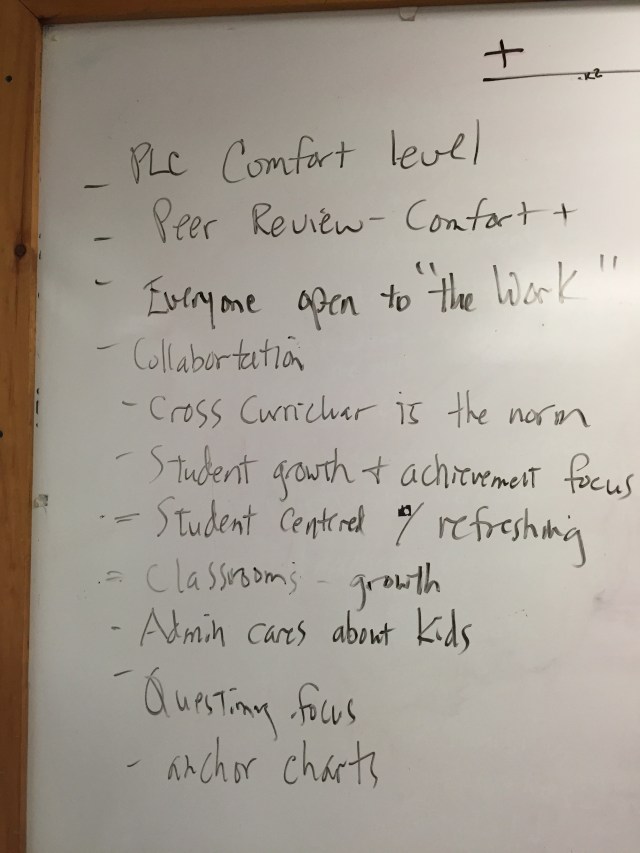 +
- PLC Comfort level
- Peer Review - Comfort +
- Everyone open to "the Work"
- Collabortation
- Cross Curricluar is the norm
- Student growth + achievement focus
- Student Centered / refreshing
= Classrooms - growth
- Admin cares about kids
- Questining focus
- anchor charts